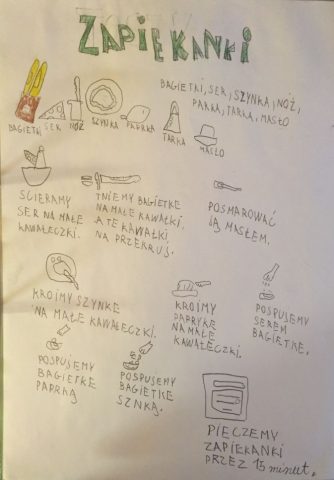 ZAPIEKANKI
BAGIETKI, SER, SZYNKA, NÓŻ,
PARKA, TARKA, MASŁO
BAGIETKI SER NÓŻ SZYNKA PAPRKA
TARKA
MASŁO
ŚCIERAMY
SER NA MAŁE
KAWAŁECZKI.
TNIEMY BAGIETKE
NA MAŁE KAWAŁKI,
A TE KAWAŁKI
NA PRZEKRUJ.
POSMAROWAĆ
JĄ MASŁEM.
KROIMY SZYNKE
NA MAŁE KAWAŁECZKI.
KROIMY
PAPRYKE
NA MAŁE
KAWAŁECZKI.
POSPUJEMY
SEREM
BAGIETKE.
POSPUJEMY
BAGIETKE
PAPRKĄ
POSPUJEMY
BAGIETKE
SZNKĄ.
PIECZEMY
ZAPIEKANKI
PRZEZ 15 minut.